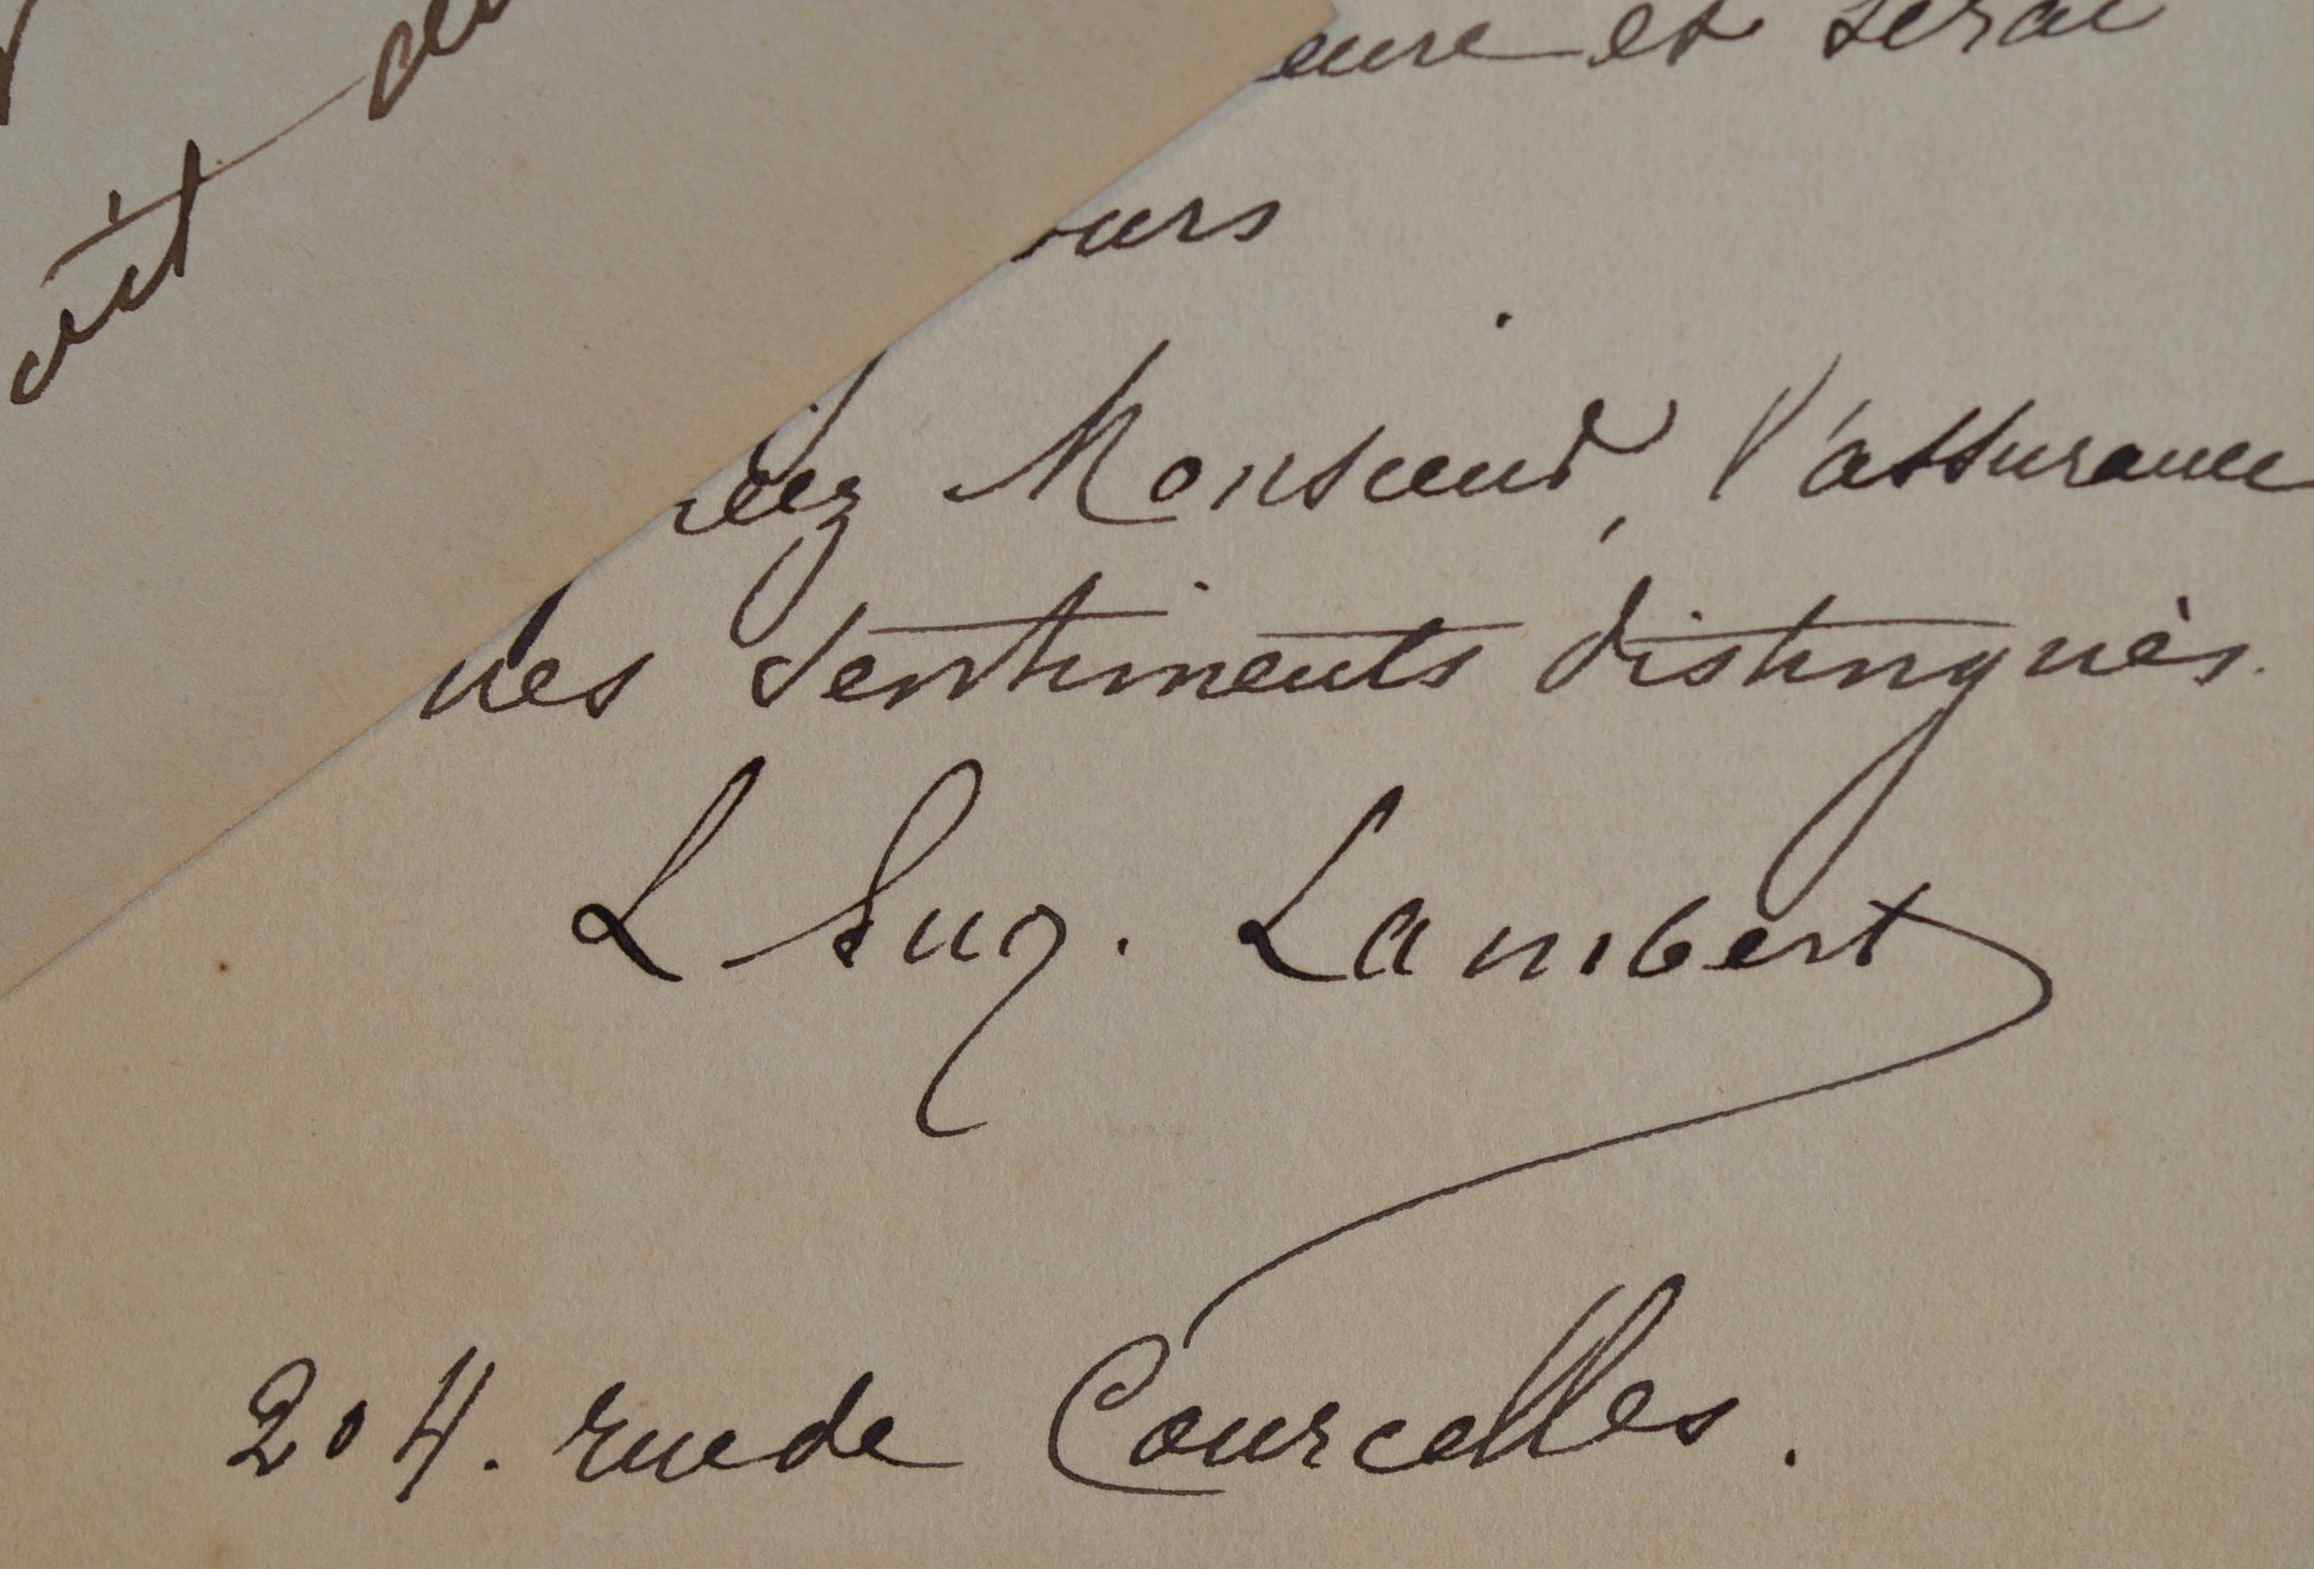 eure et serai
ours
éez Monsieur, l'assurance
mes sentiments distingués.
L Eug. Lambert
204. rue de Courcelles.